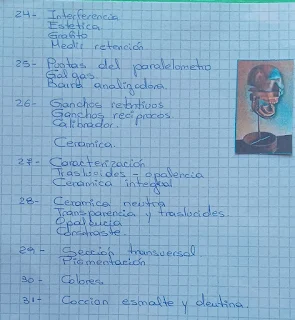 24- Interferencia
Estetica
Grafito
Medir retención
25- Puntas del paralelometro
Galgas
Barra analizadora
26- Ganchos retentivos
Ganchos reciprocos
Calibrador
Ceramica
27- Caracterización
Traslucides - opalencia
Ceramica integral
28- Ceramica neutra
Transparencia y traslucides
Opalencia
Constraste.
29- Sección transversal
Pigmentación
30- Colores
31- Coccion esmalte y dentina.